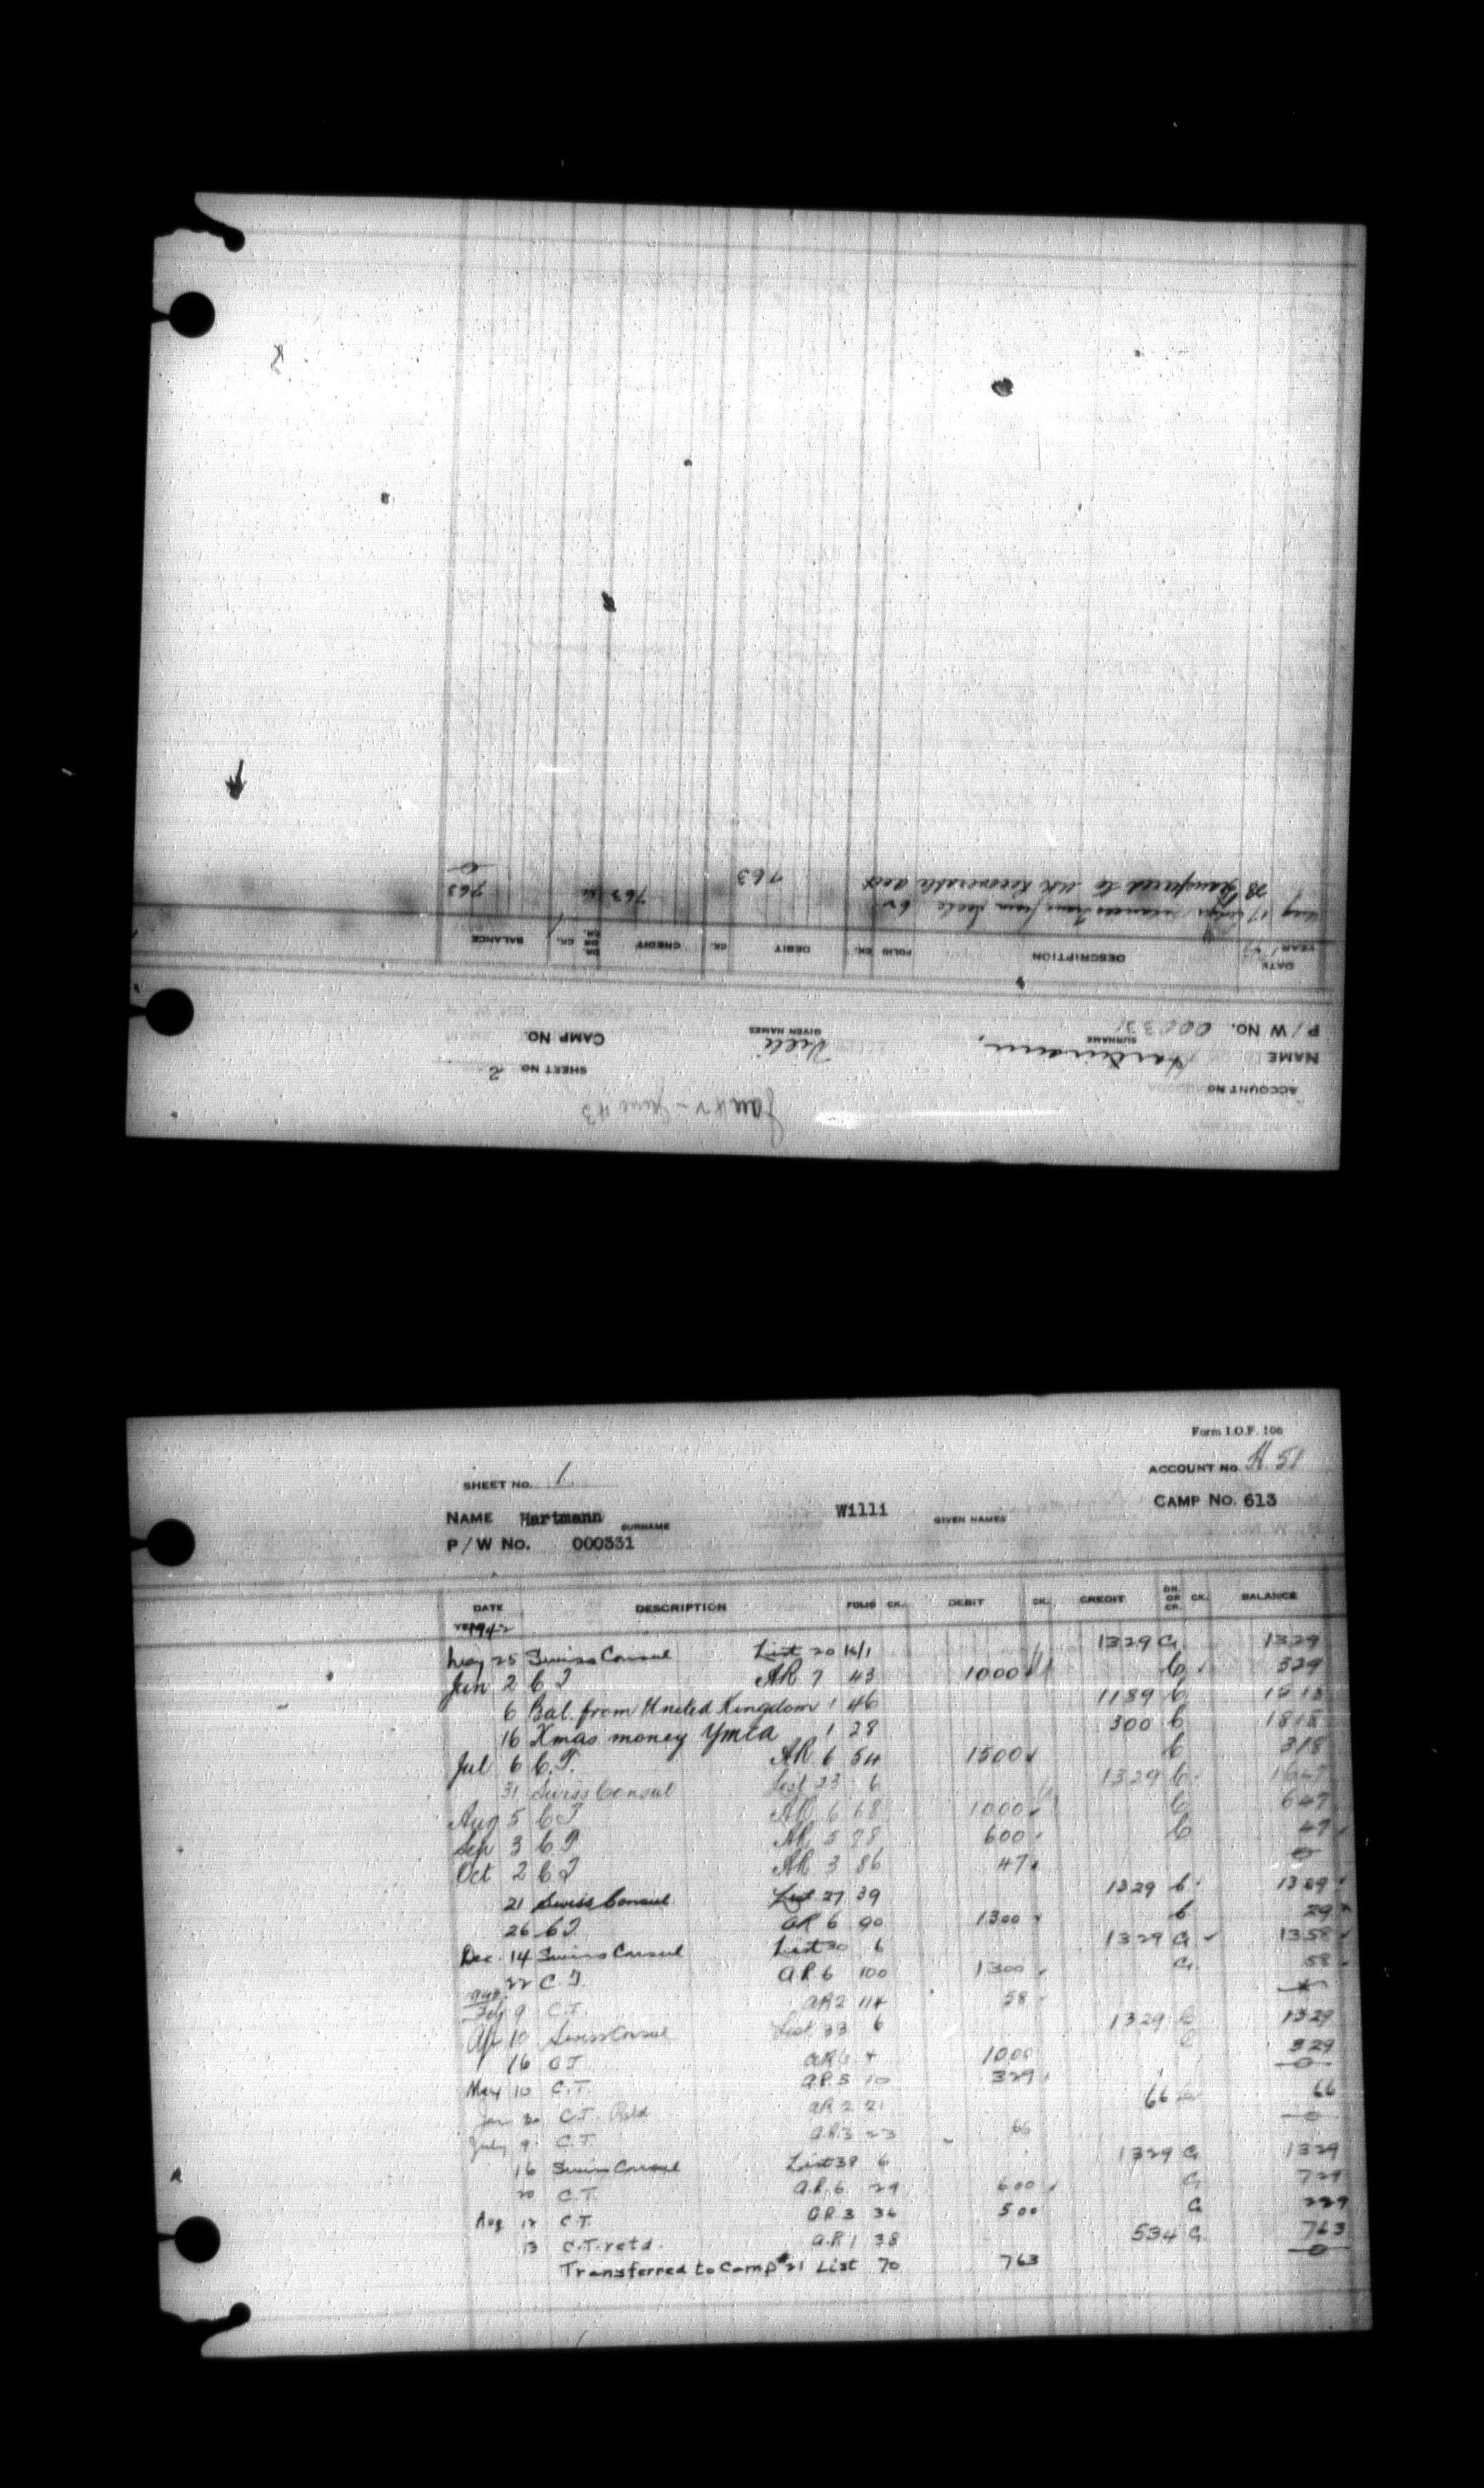 Jan 42 - June 43
ACCOUNT NO
SHEET NO. 2
NAME Hartmann, SURNAME Willi GIVEN NAMES
P/W NO. 000331 CAMP NO.
DATE YEAR DESCRIPTION FOLIO CK. DEBIT CK. CREDIT DR. OR CR. CK. BALANCE
Aug 17 balances from 763 763
28 Transferred to UK Recoverable acct 763 0
Form I.O.F. 106
SHEET NO. 1 ACCOUNT NO. H 51
NAME Hartmann SURNAME Willi GIVEN NAMES CAMP NO. 613
P/W No. 000331
DATE DESCRIPTION FOLIO CK. DEBIT CK. CREDIT DR. OR CR. CK. BALANCE
YEAR 1942
May 25 Swiss Consul List 20 16/1 1329 C 1329
Jun 2 CT AR 7 43 1000 C 329
6 Bal. from United Kingdom 1 46 1189 C 1518
16 Xmas money YMCA 1 28 300 C 1818
Jul 6 C.T. AR 6 54 1500 C 318
31 Swiss Consul List 23 6 1329 C 1647
Aug 5 CT AR 6 68 1000 C 647
Sep 3 CT AR 5 78 600 C 47
Oct 2 CT AR 3 86 47 0
21 Swiss Consul List 27 39 1329 C 1329
26 CT AR 6 90 1300 C 29
Dec 14 Swiss Consul List 30 6 1329 C 1358
22 C.T. AR 6 100 1300 C 58
1943
Feb 9 C.T. AR 2 114 58
Apr 10 Swiss Consul List 33 6 1329 C 1329
16 CT AR 6 4 1000 C 329
May 10 C.T. AR 5 10 329 0
Jun 30 C.T. AR 2 21 66 66
July 9 C.T. AR 3 23 66 0
16 Swiss Consul List 38 6 1329 C 1329
20 C.T. AR 6 29 600 C 729
Aug 12 C.T. AR 3 36 500 C 229
13 C.T. retd. AR 1 38 534 C 763
Transferred to Camp #21 List 70 763 0